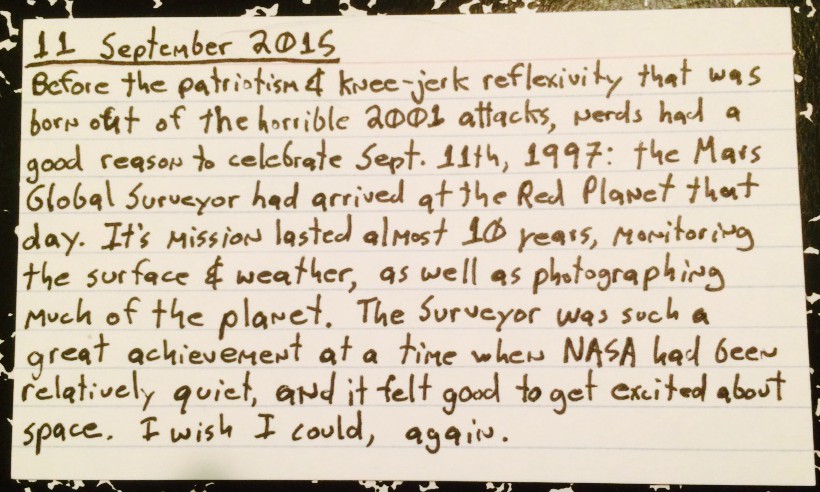 11 September 2015
Before the patriotism & knee-jerk reflexivity that was
born out of the horrible 2001 attacks, nerds had a
good reason to celebrate Sept. 11th, 1997: the Mars
Global Surveyor had arrived at the Red Planet that
day. It's mission lasted almost 10 years, monitoring
the surface & weather, as well as photographing
much of the planet. The Surveyor was such a
great achievement at a time when NASA had been
relatively quiet, and it felt good to get excited about
space. I wish I could, again.